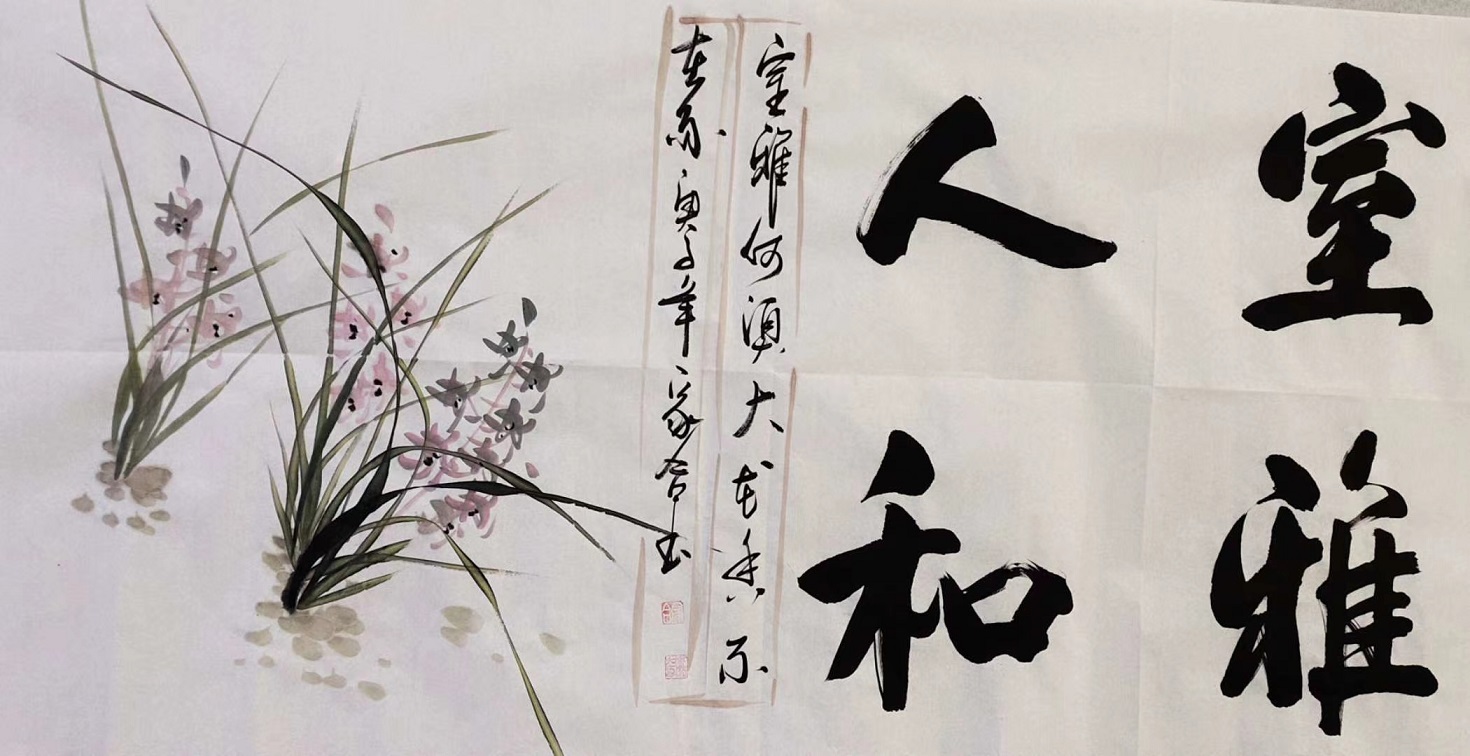 室雅
人和
室雅何須大花香不
在多 庚子年 书